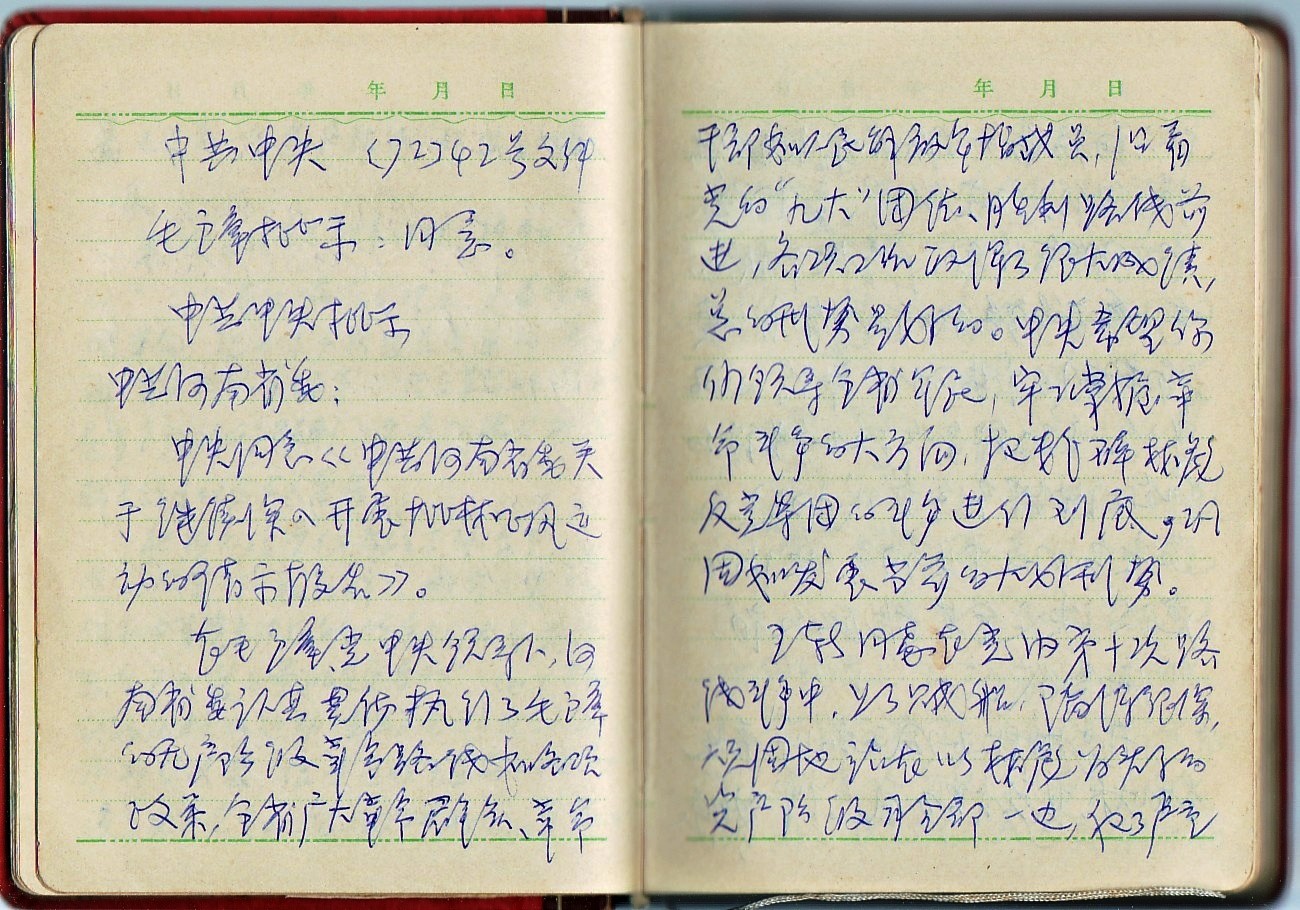 年 月 日
中共中央 〈72〉42号文件
毛主席批示：同意。
中共中央批示
中共河南省委：
中央同意《中共河南省委关
于继续深入开展批林整风运
动的请示报告》。
在毛主席党中央领导下，河
南省委认真具体执行了毛主席
的无产阶级革命路线和各项
政策，全省广大革命群众、革命
年 月 日
干部和人民解放军指战员，沿着
党的“九大”团结、胜利路线前
进，各项工作取得了很大成绩，
总的形势是好的。中央希望你
们领导全省军民，牢牢掌握革
命斗争的大方向，把粉碎林彪
反党集团的斗争进行到底，巩
固和发展当前的大好形势。
王新同志在党内第十次路
线斗争中，上了贼船，陷得很深，
顽固地站在以林彪为头子的
资产阶级司令部一边，犯了严重